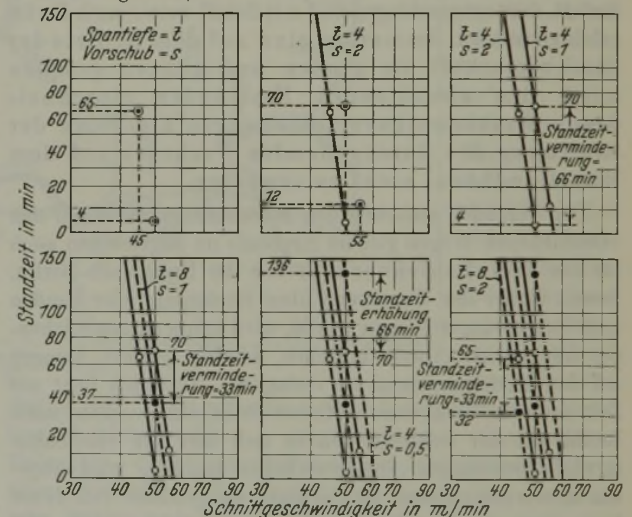 150
100
80
60
40
20
0
Standzeit in min
Spantiefe = t
Vorschub = s
65
4
45
t=4
s=2
70
12
55
t=4
s=2
t=4
s=1
70
Standzeit-
verminde-
rung=
66 min
4
150
100
80
60
40
20
0
t=8
s=1
70
Standzeit-
verminde-
rung=33min
37
136
Standzeit-
erhöhung
=66min
70
t=4
s=0,5
t=8
s=2
65
Standzeit-
verminde-
rung=33min
32
30 40 50 60 70 90
30 40 50 60 70 90
30 40 50 60 70 90
Schnittgeschwindigkeit in m/min